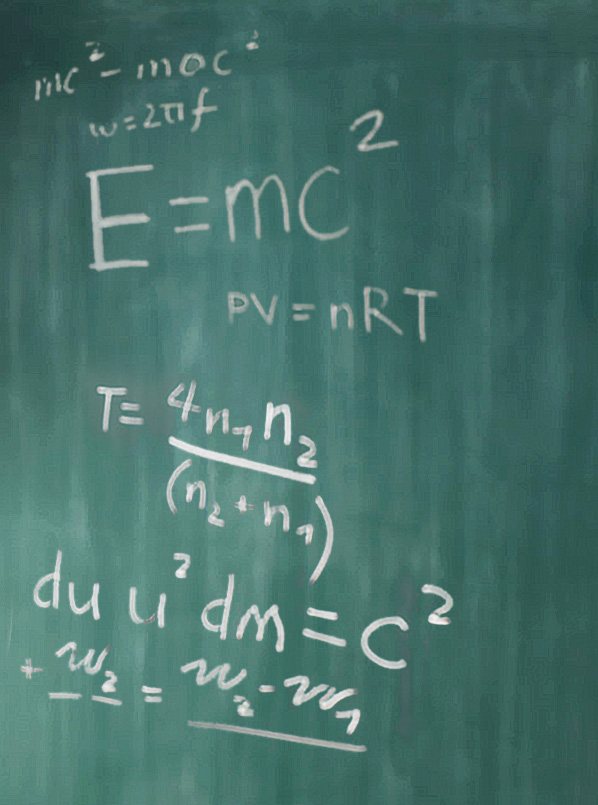 mc² - moc²
w = 2πf
E = mc²
PV = nRT
T = 4n₁n₂
(n₂ + n₁)
du u² dm = c²
+ w₂ = w₂ - w₁